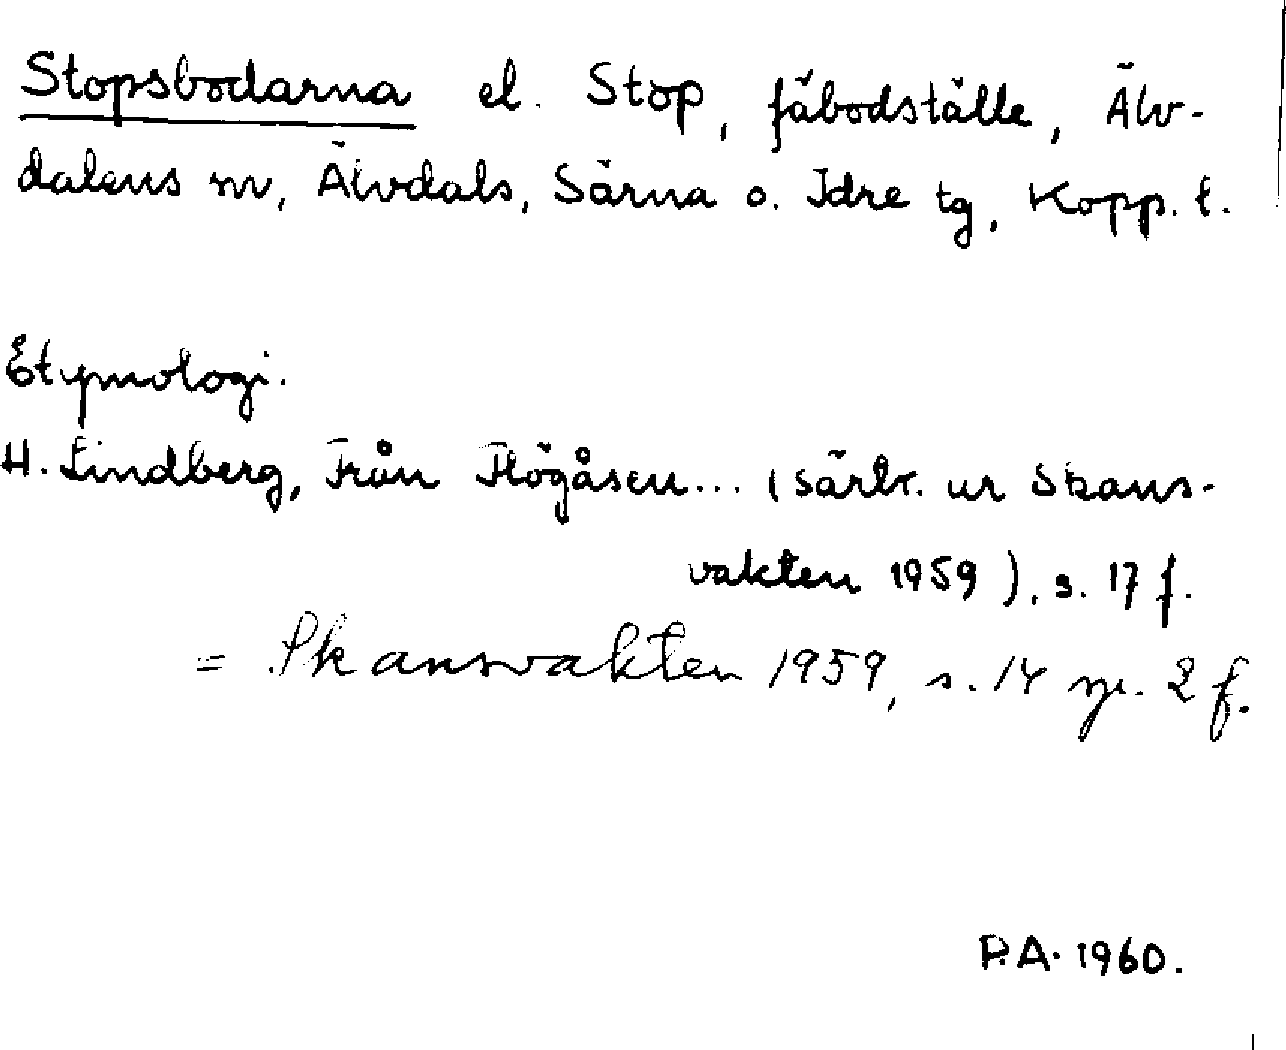 Stopsbodarna el. Stop, fäbodställe, Älv-
dalens sn, Älvdals, Särna o. Idre tg, Kopp. l.
Etymologi.
H. Lindberg, Från Flögåsen... (särtr. ur Skans-
vakten 1959), s. 17 f.
= Skansvakten 1959, s. 14 sp. 2 f.
P.A. 1960.